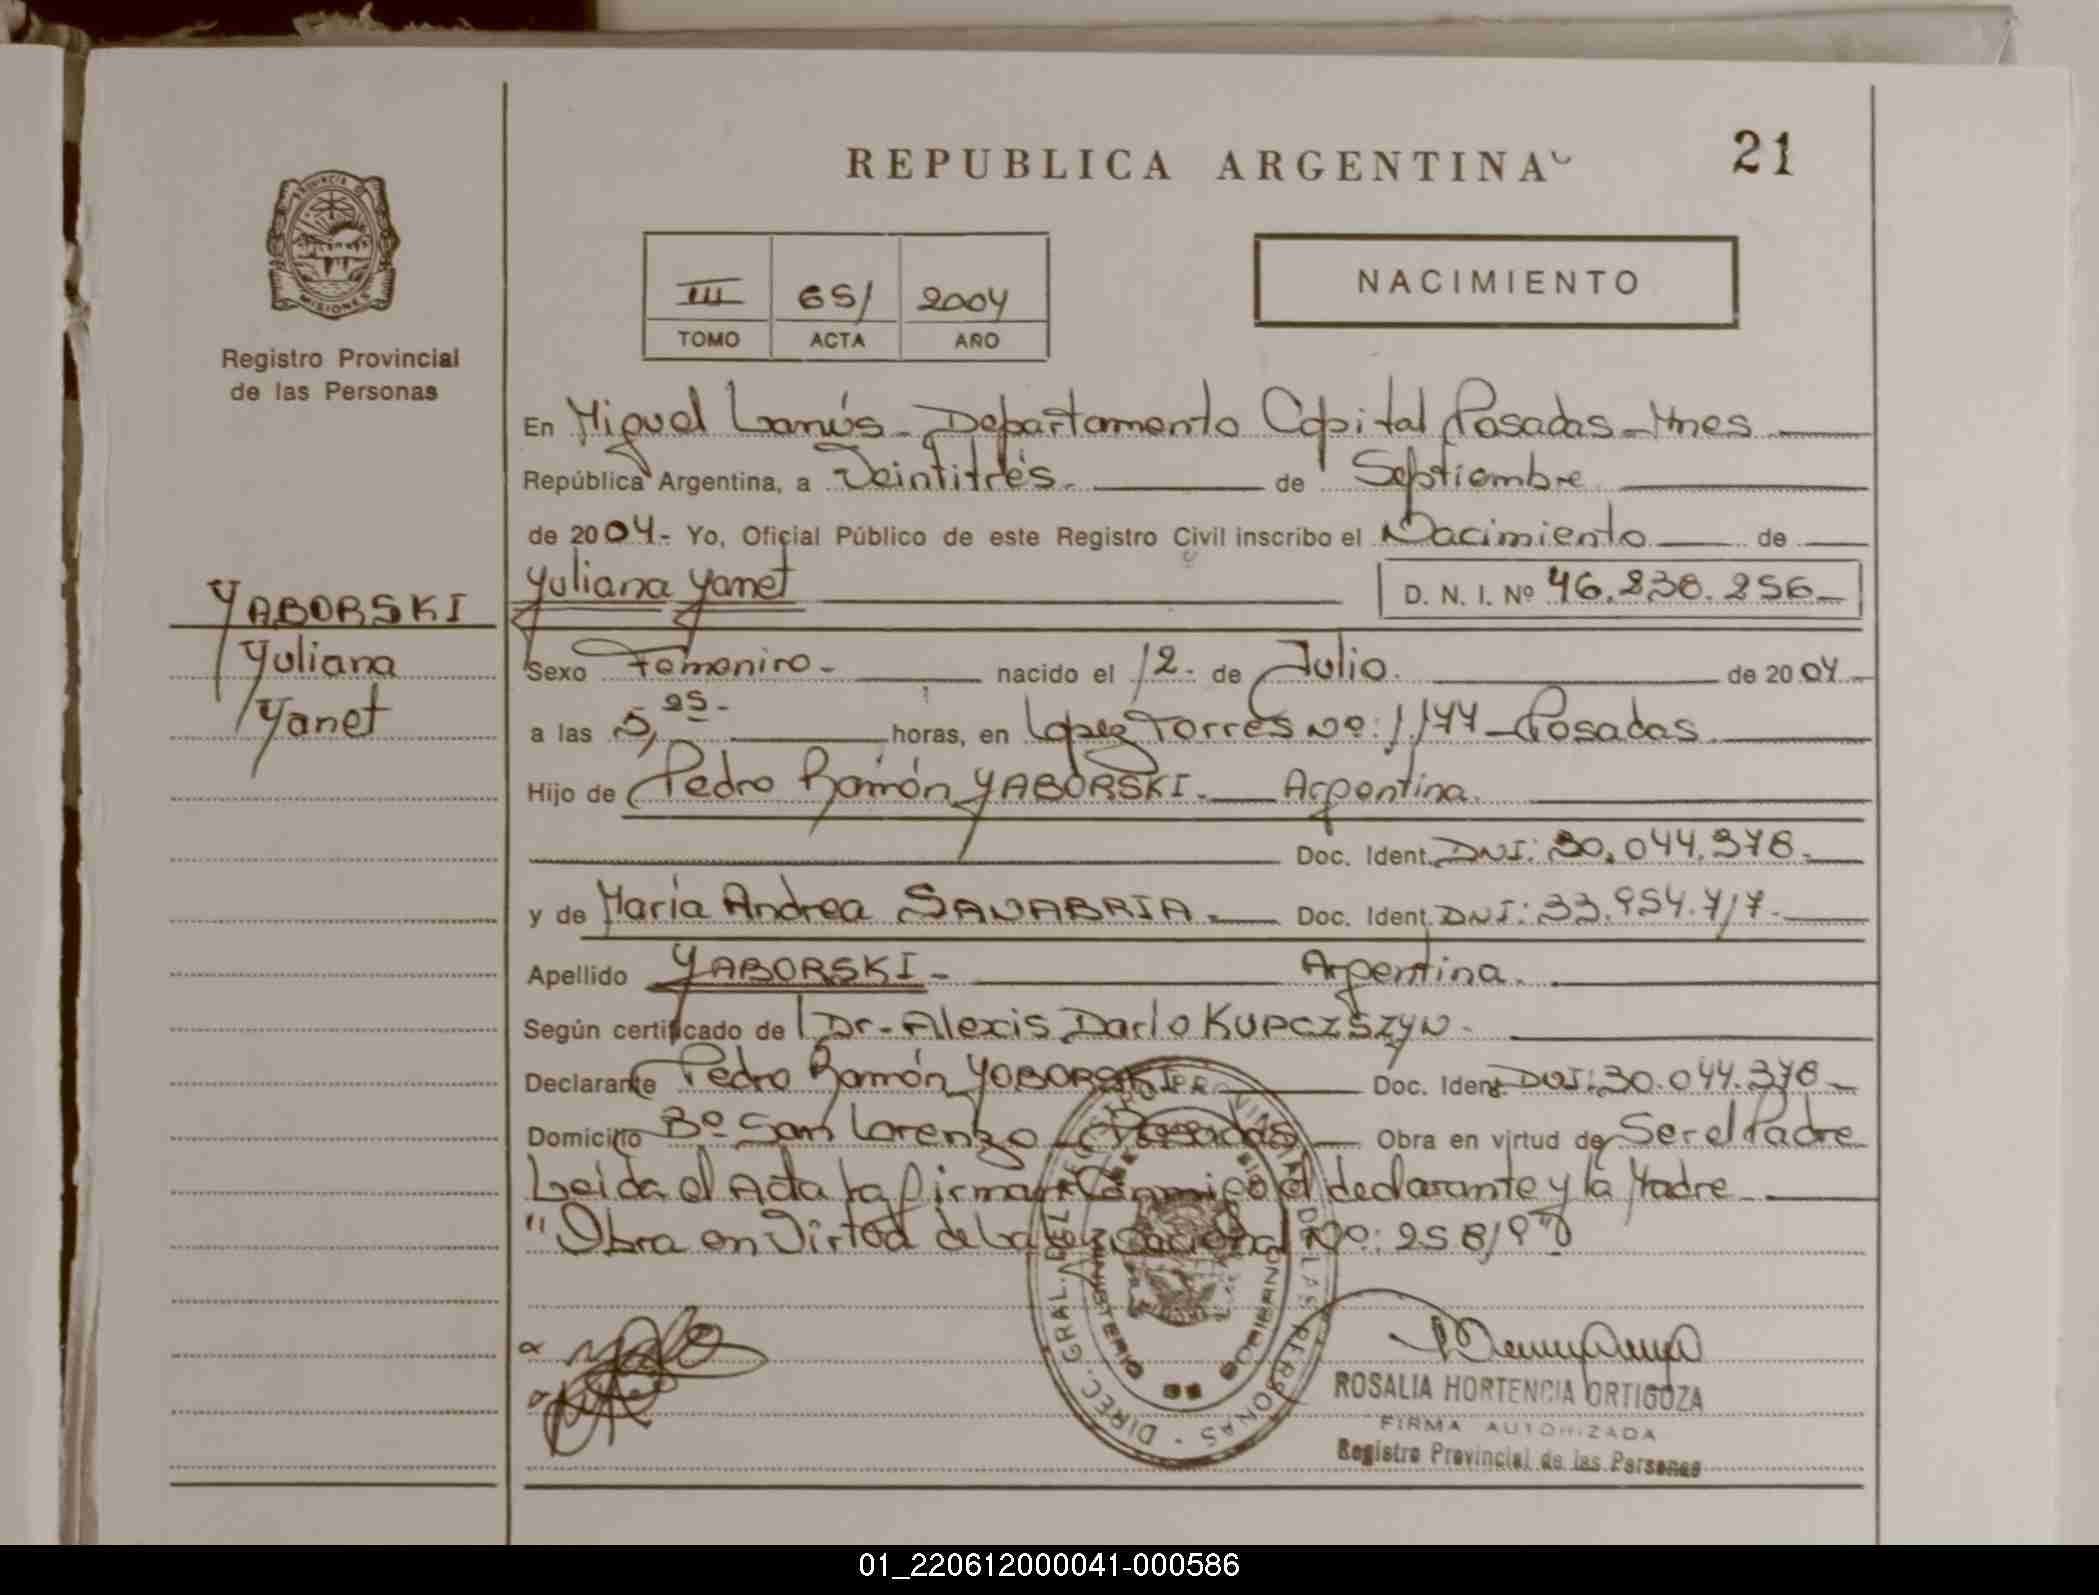 REPUBLICA ARGENTINA
21
PROVINCIA DE
MISIONES
Registro Provincial
de las Personas
III 651 2004
TOMO ACTA AÑO
NACIMIENTO
En Miguel Lanús - Departamento Capital Posadas - Mnes
República Argentina, a Veintitrés. de Septiembre
de 2004.- Yo, Oficial Público de este Registro Civil inscribo el Nacimiento de
Yuliana Yanet D. N. I. Nº 46.238.256
YABORSKI
Yuliana
Yanet
Sexo Femenino- nacido el 12. de Julio. de 2004
a las 5,25- horas, en Lopez Torres Nº: 1.177 - Posadas
Hijo de Pedro Ramón YABORSKI. Argentina
Doc. Ident. DNI: 30.044.378.
y de María Andrea SANABRIA. Doc. Ident. DNI: 33.954.717.
Apellido YABORSKI - Argentina.
Según certificado de Dr. Alexis Darío KUPCZSZYN.
Declarante Pedro Ramón YABORSKI Doc. Ident. DNI: 30.044.378
Domicilio Bº San Lorenzo - Posadas Obra en virtud de Ser el Padre
Leída el Acta la firman Conmigo el declarante y la Madre
"Obra en Virtud de la Ley Nacional Nº: 258/9
DIREC. GRAL. DEL REGISTRO PROVINCIAL DE LAS PERSONAS
MINISTERIO DE GOBIERNO
MISIONES
ROSALIA HORTENCIA ORTIGOZA
FIRMA AUTORIZADA
Registro Provincial de las Personas
01_220612000041-000586